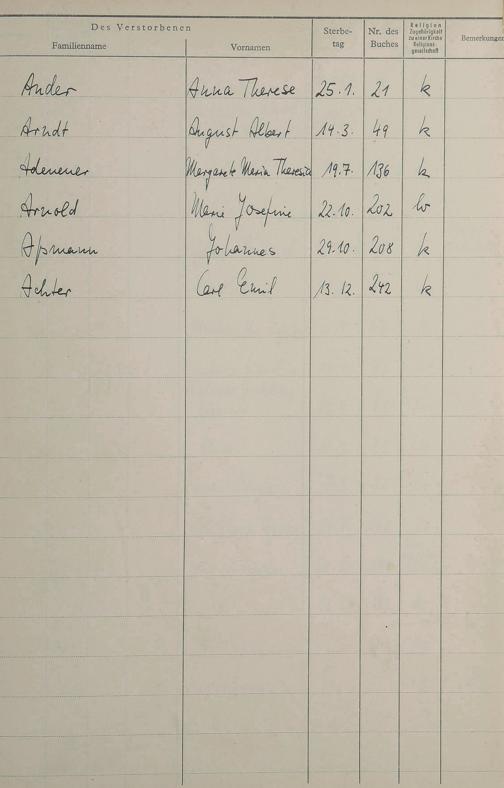 Des Verstorbenen
Familienname Vornamen Sterbe-tag Nr. des Buches Religion Zugehörigkeit zu einer Kirche Religions-gesellschaft Bemerkungen
Ander Anna Therese 25.1. 21 k
Arndt August Albert 14.3. 49 k
Adeneuer Margarete Maria Theresia 19.7. 136 k
Arnold Marie Josefine 22.10. 202
Apmann Johannes 29.10. 208 k
Achter Carl Emil 13.12. 242 k